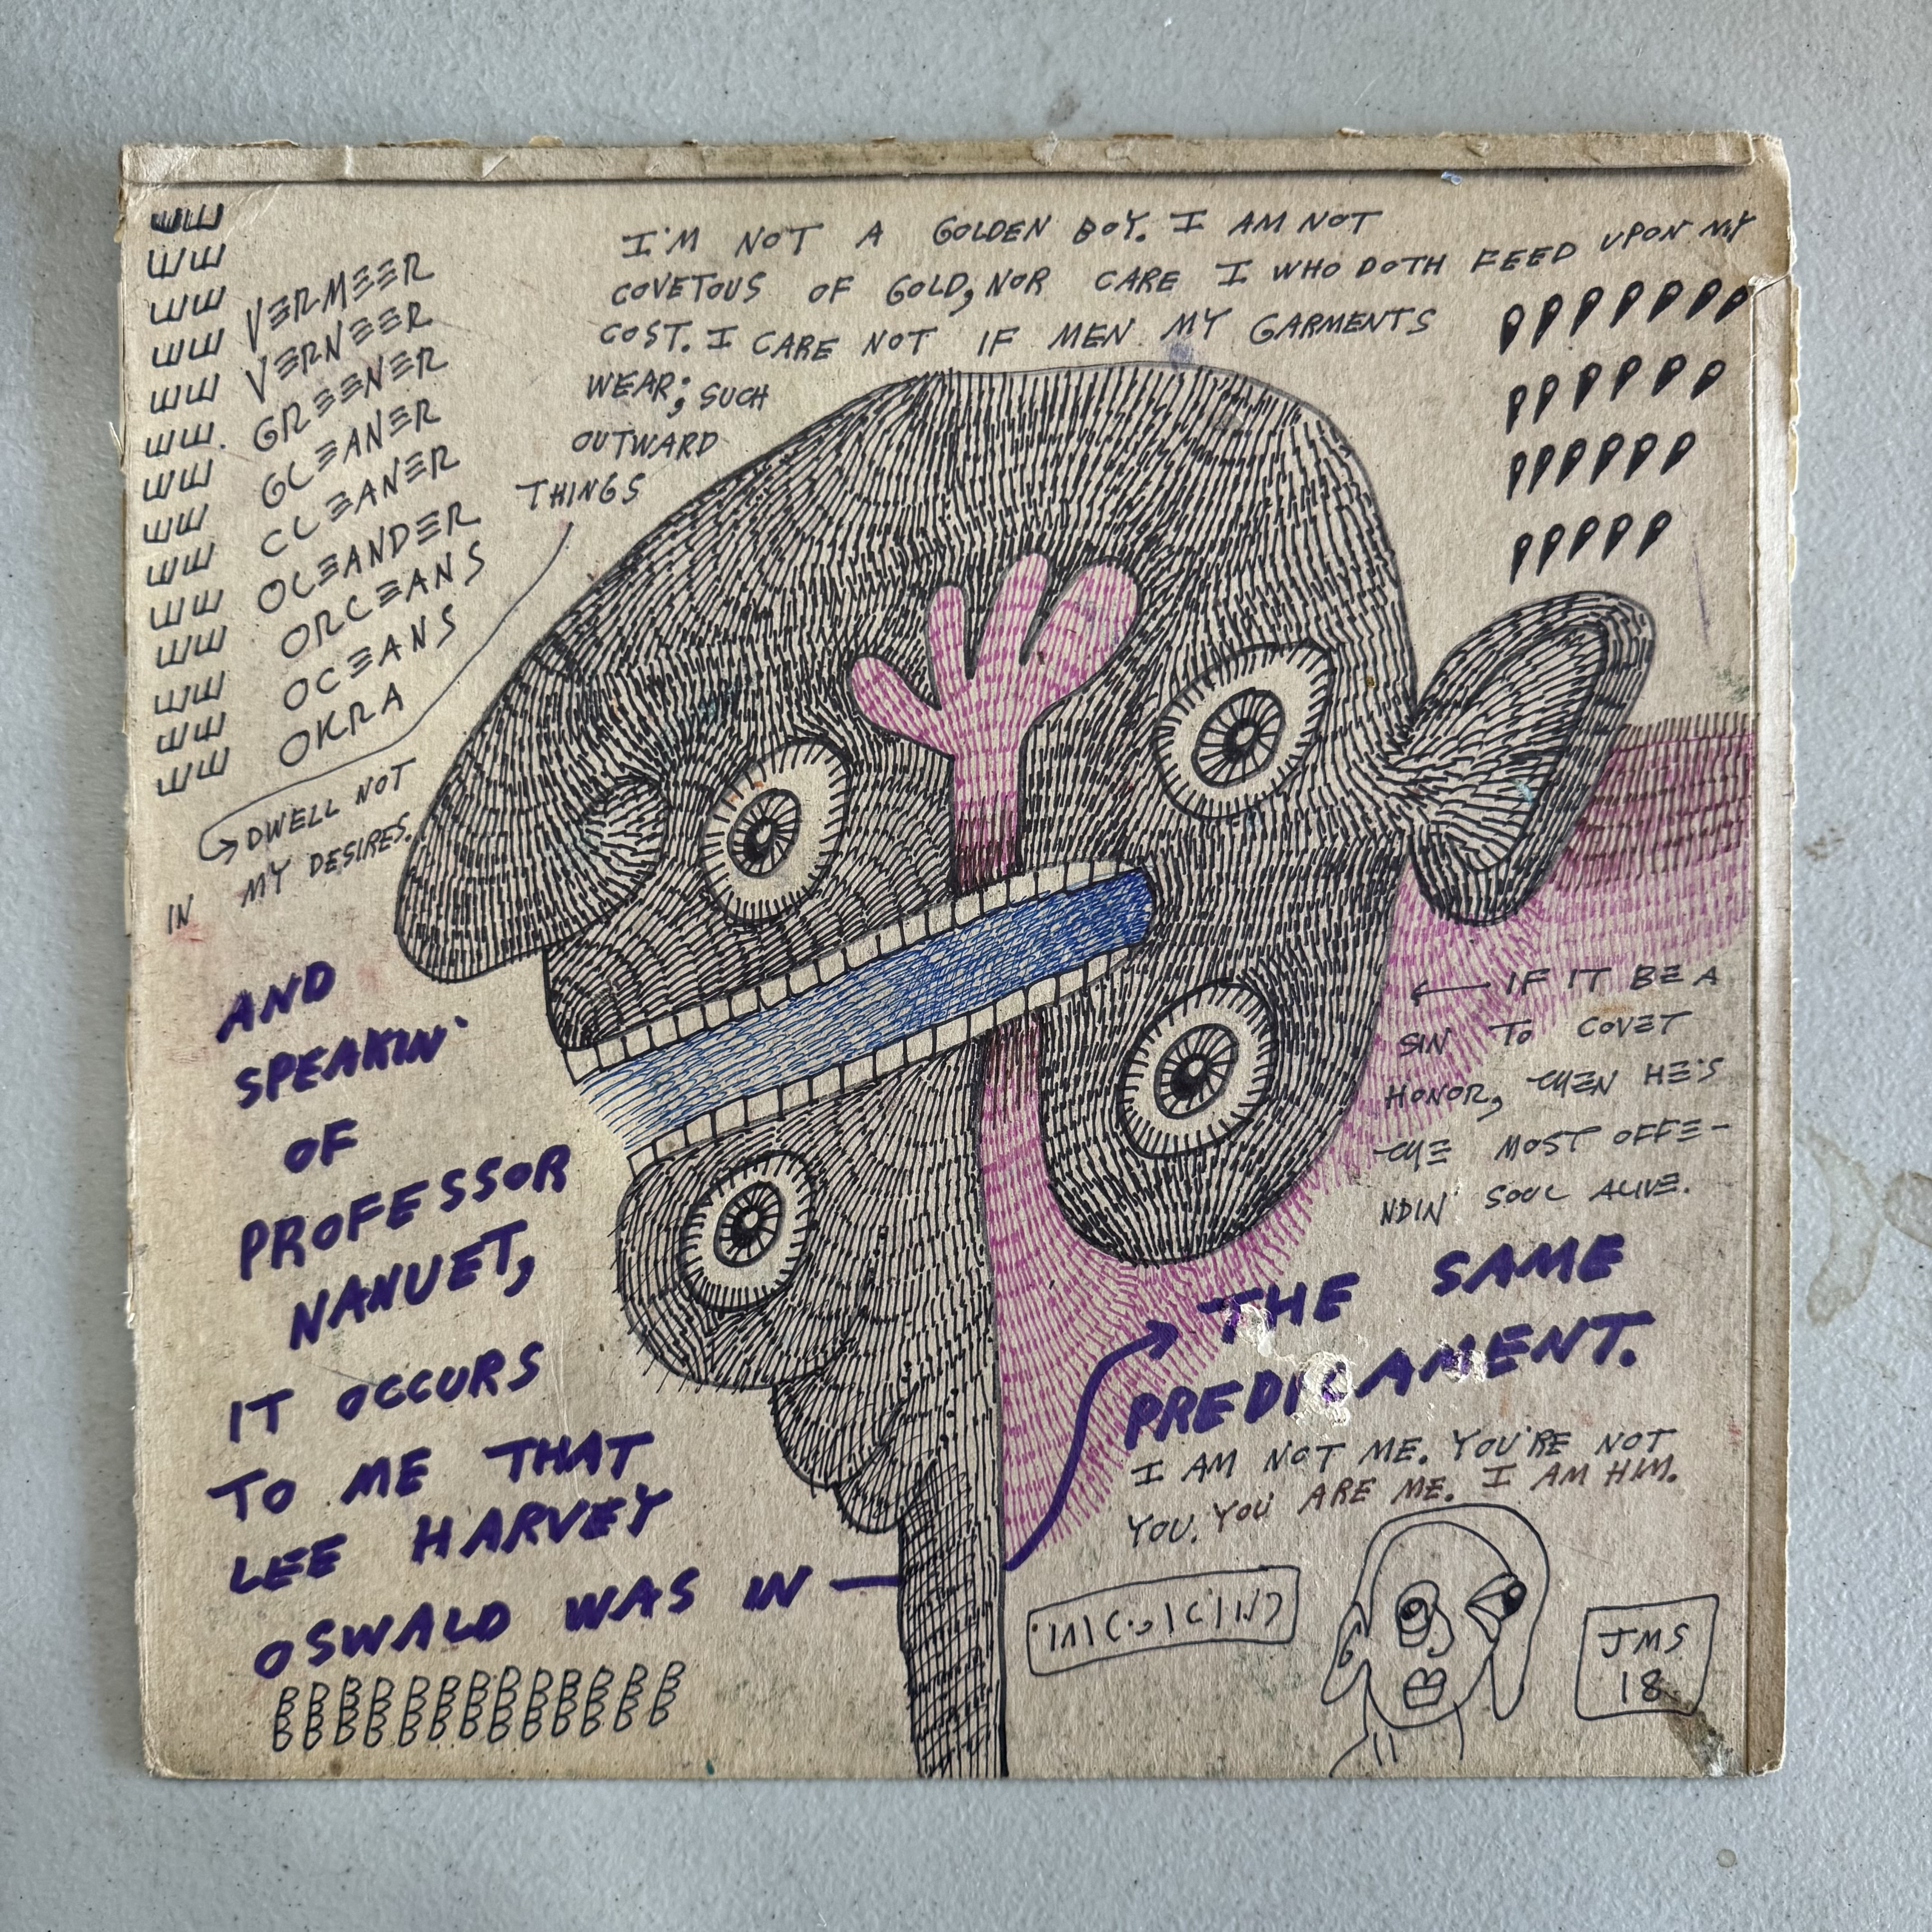 I'M NOT A GOLDEN BOY. I AM NOT
COVETOUS OF GOLD, NOR CARE I WHO DOTH FEED UPON MY
COST. I CARE NOT IF MEN MY GARMENTS
WEAR; SUCH
OUTWARD
THINGS
DWELL NOT
IN MY DESIRES.
VERMEER
VERNEER
GREENER
GLEANER
CLEANER
OLEANDER
ORLEANS
OCEANS
OKRA
IF IT BE A
SIN TO COVET
HONOR, THEN HE'S
THE MOST OFFE-
NDIN' SOUL ALIVE.
AND
SPEAKIN'
OF
PROFESSOR
NANUET,
IT OCCURS
TO ME THAT
LEE HARVEY
OSWALD WAS IN
THE SAME
PREDICAMENT.
I AM NOT ME. YOU'RE NOT
YOU. YOU ARE ME. I AM HIM.
JMS
18